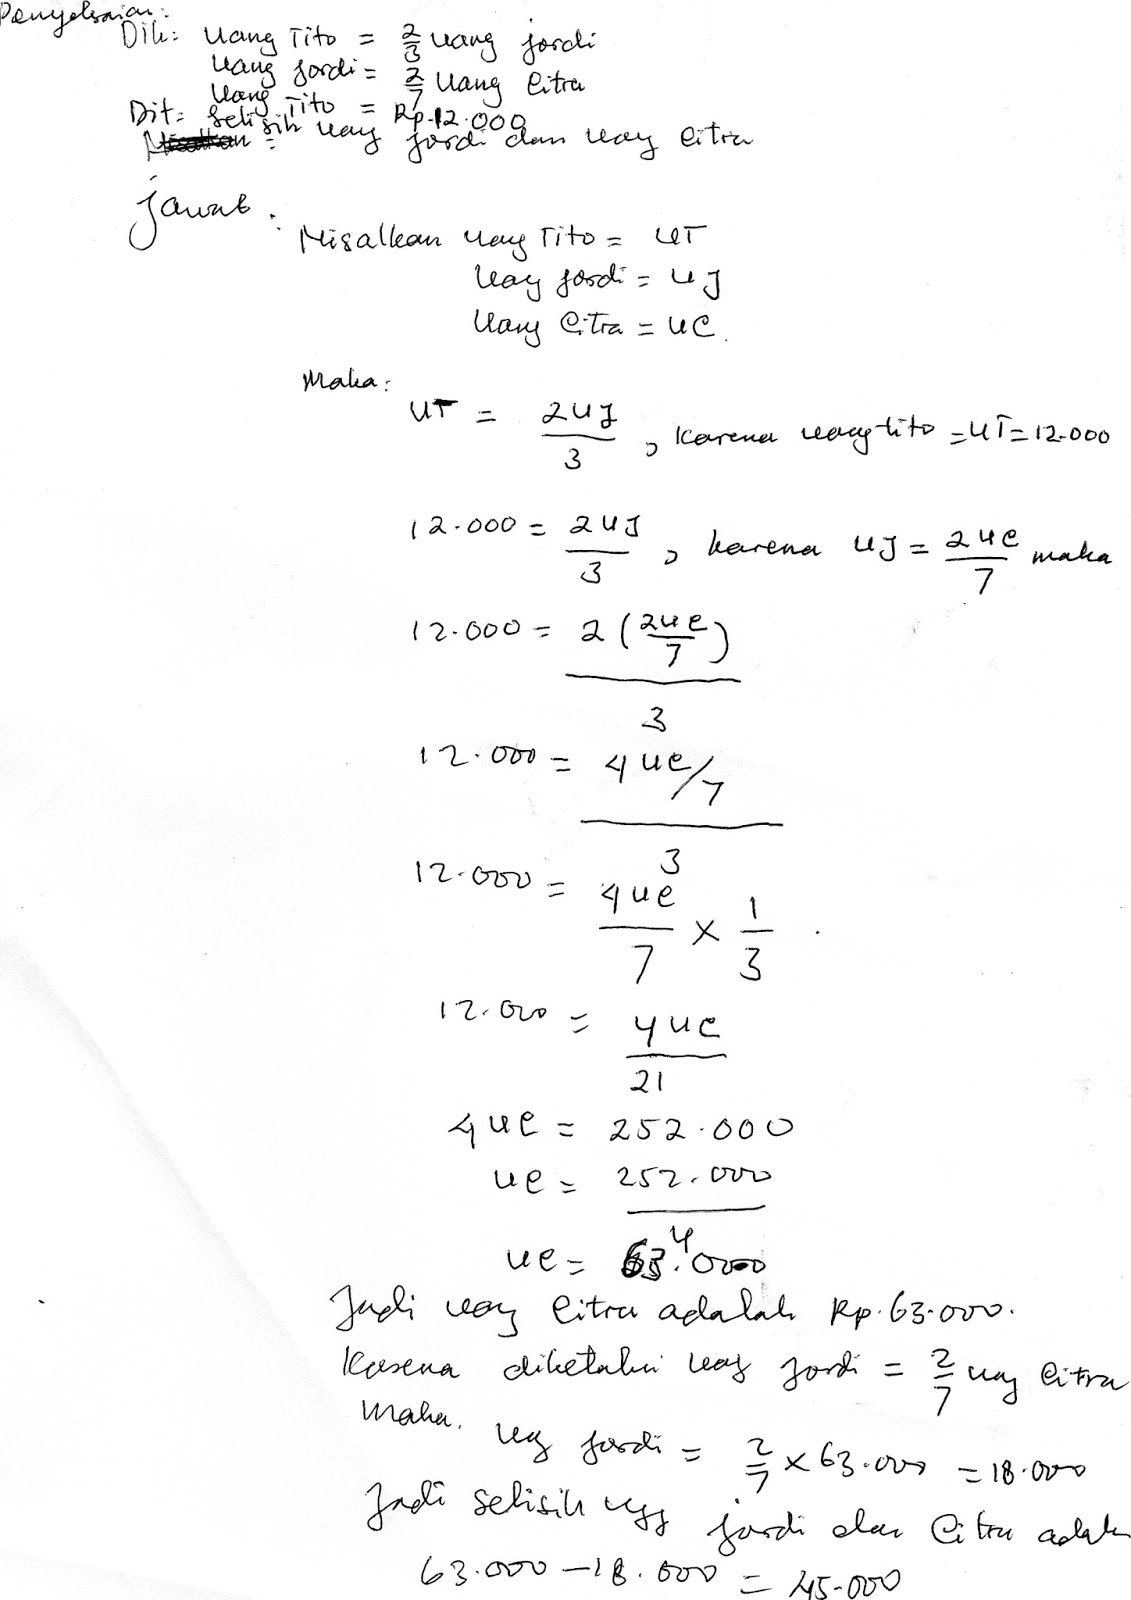 Penyelesaian:
Dik: Uang Tito = 2/3 uang Jordi
Uang Jordi = 2/7 Uang Citra
Uang Tito = Rp.12.000
Dit: Selisih uang Jordi dan uang Citra
Jawab:
Misalkan uang Tito = UT
Uang Jordi = UJ
Uang Citra = UC.
Maka:
UT = 2UJ/3, karena uang tito = UT = 12.000
12.000 = 2UJ/3, karena UJ = 2UC/7 maka
12.000 = 2(2UC/7)/3
12.000 = 4UC/7/3
12.000 = 4UC/7 × 1/3
12.000 = 4UC/21
4UC = 252.000
UC = 252.000/4
UC = 63.000
Jadi uang Citra adalah Rp.63.000.
Karena diketahui uang Jordi = 2/7 uang Citra
Maka. uang Jordi = 2/7 × 63.000 = 18.000
Jadi selisih uang Jordi dan Citra adalah
63.000 – 18.000 = 45.000